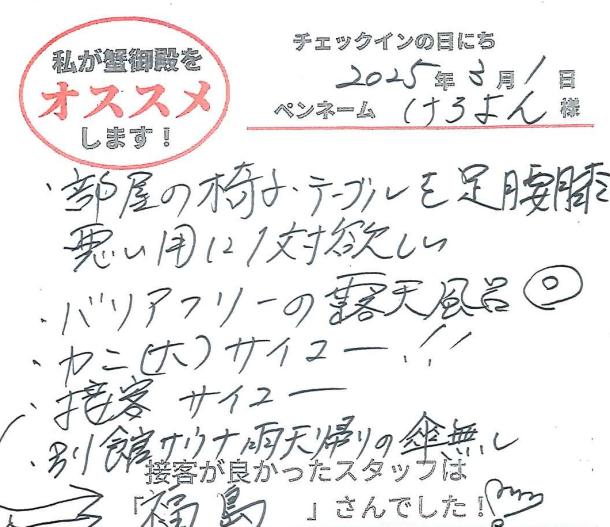 私が蟹御殿を
オススメ
します！
チェックインの日にち
2025年3月1日
ペンネーム けろよん 様
・部屋の椅子・テーブルを足腰膝
悪い用に1対欲しい
・バリアフリーの露天風呂◎
・カニ(大)サイコー!!
・接客 サイコー
・別館サウナ雨天帰りの傘無し
接客が良かったスタッフは
「福島」さんでした！